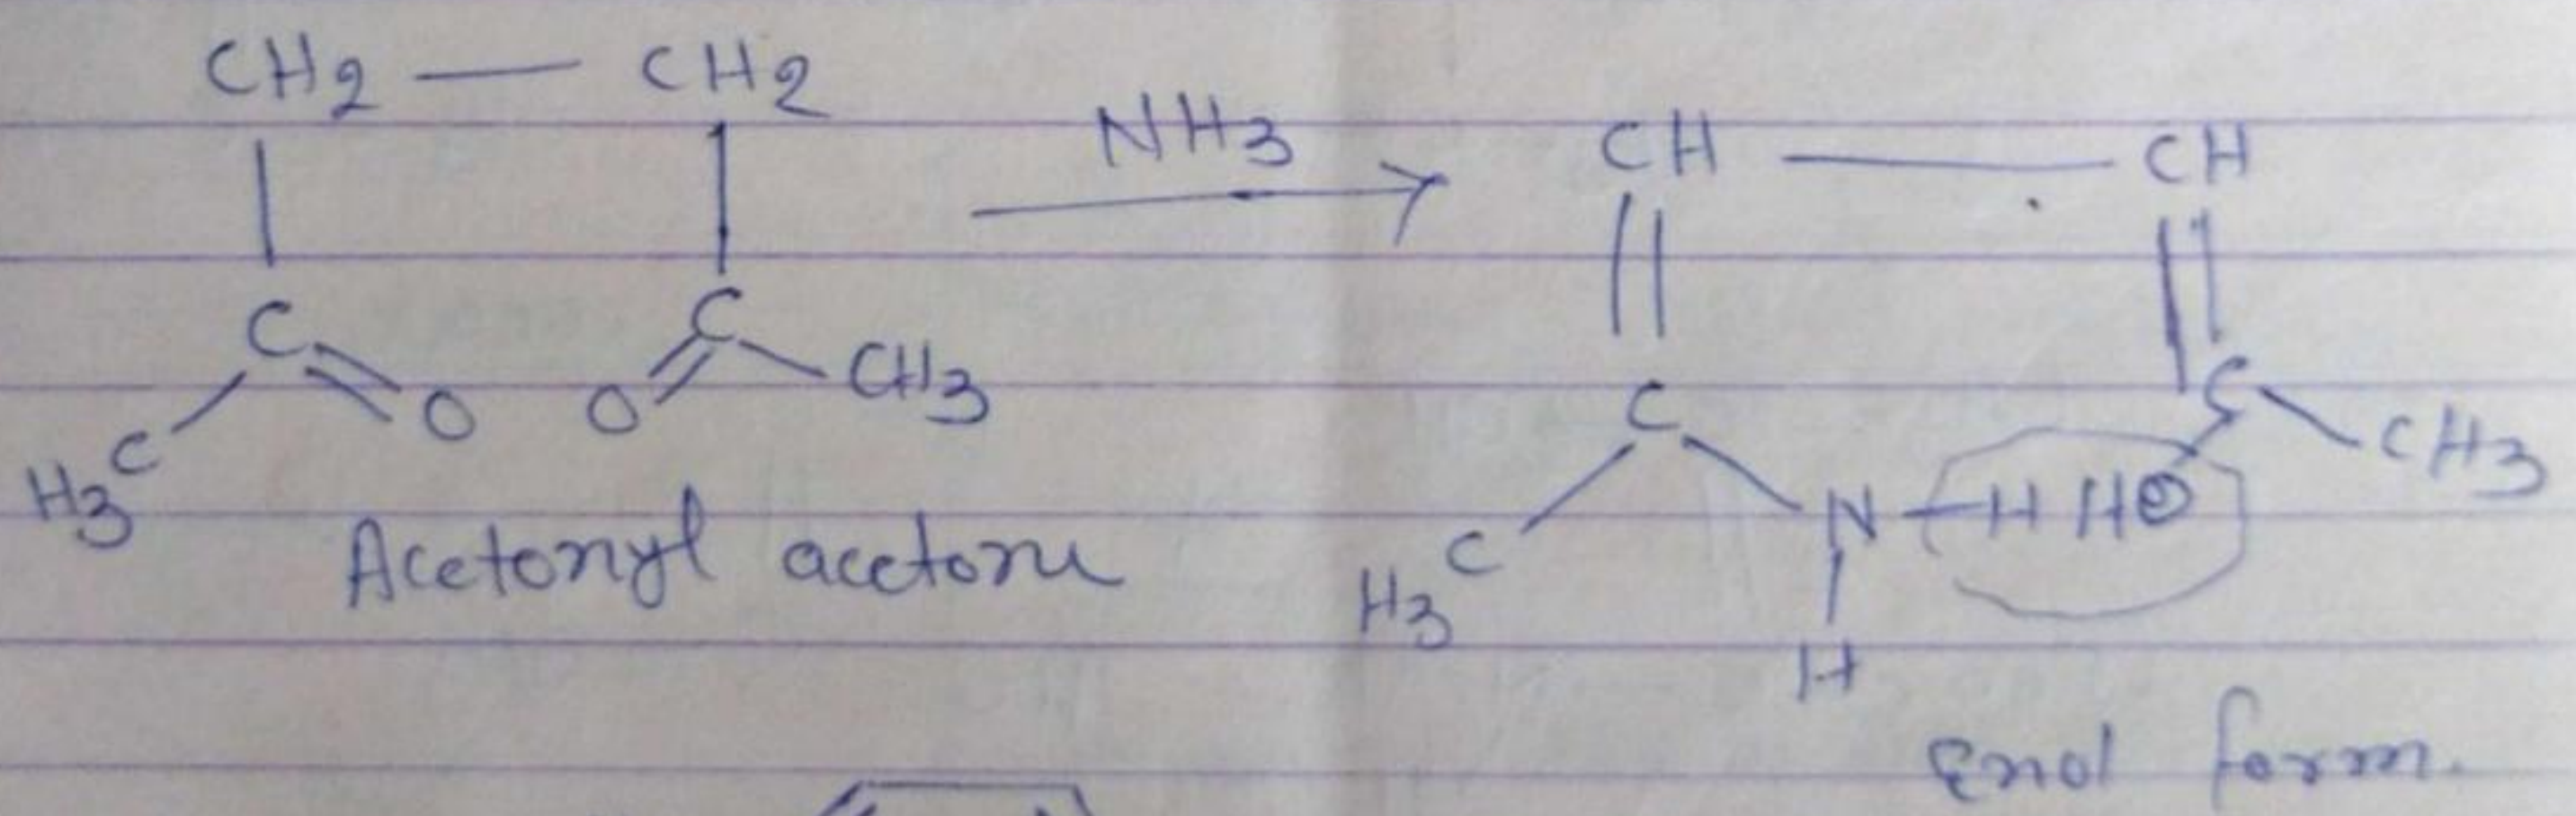 CH2 — CH2
NH3
CH — CH
C C
O O CH3
H3C
C C
CH3
H3C N — H HO
H
Acetonyl acetone
Enol form.